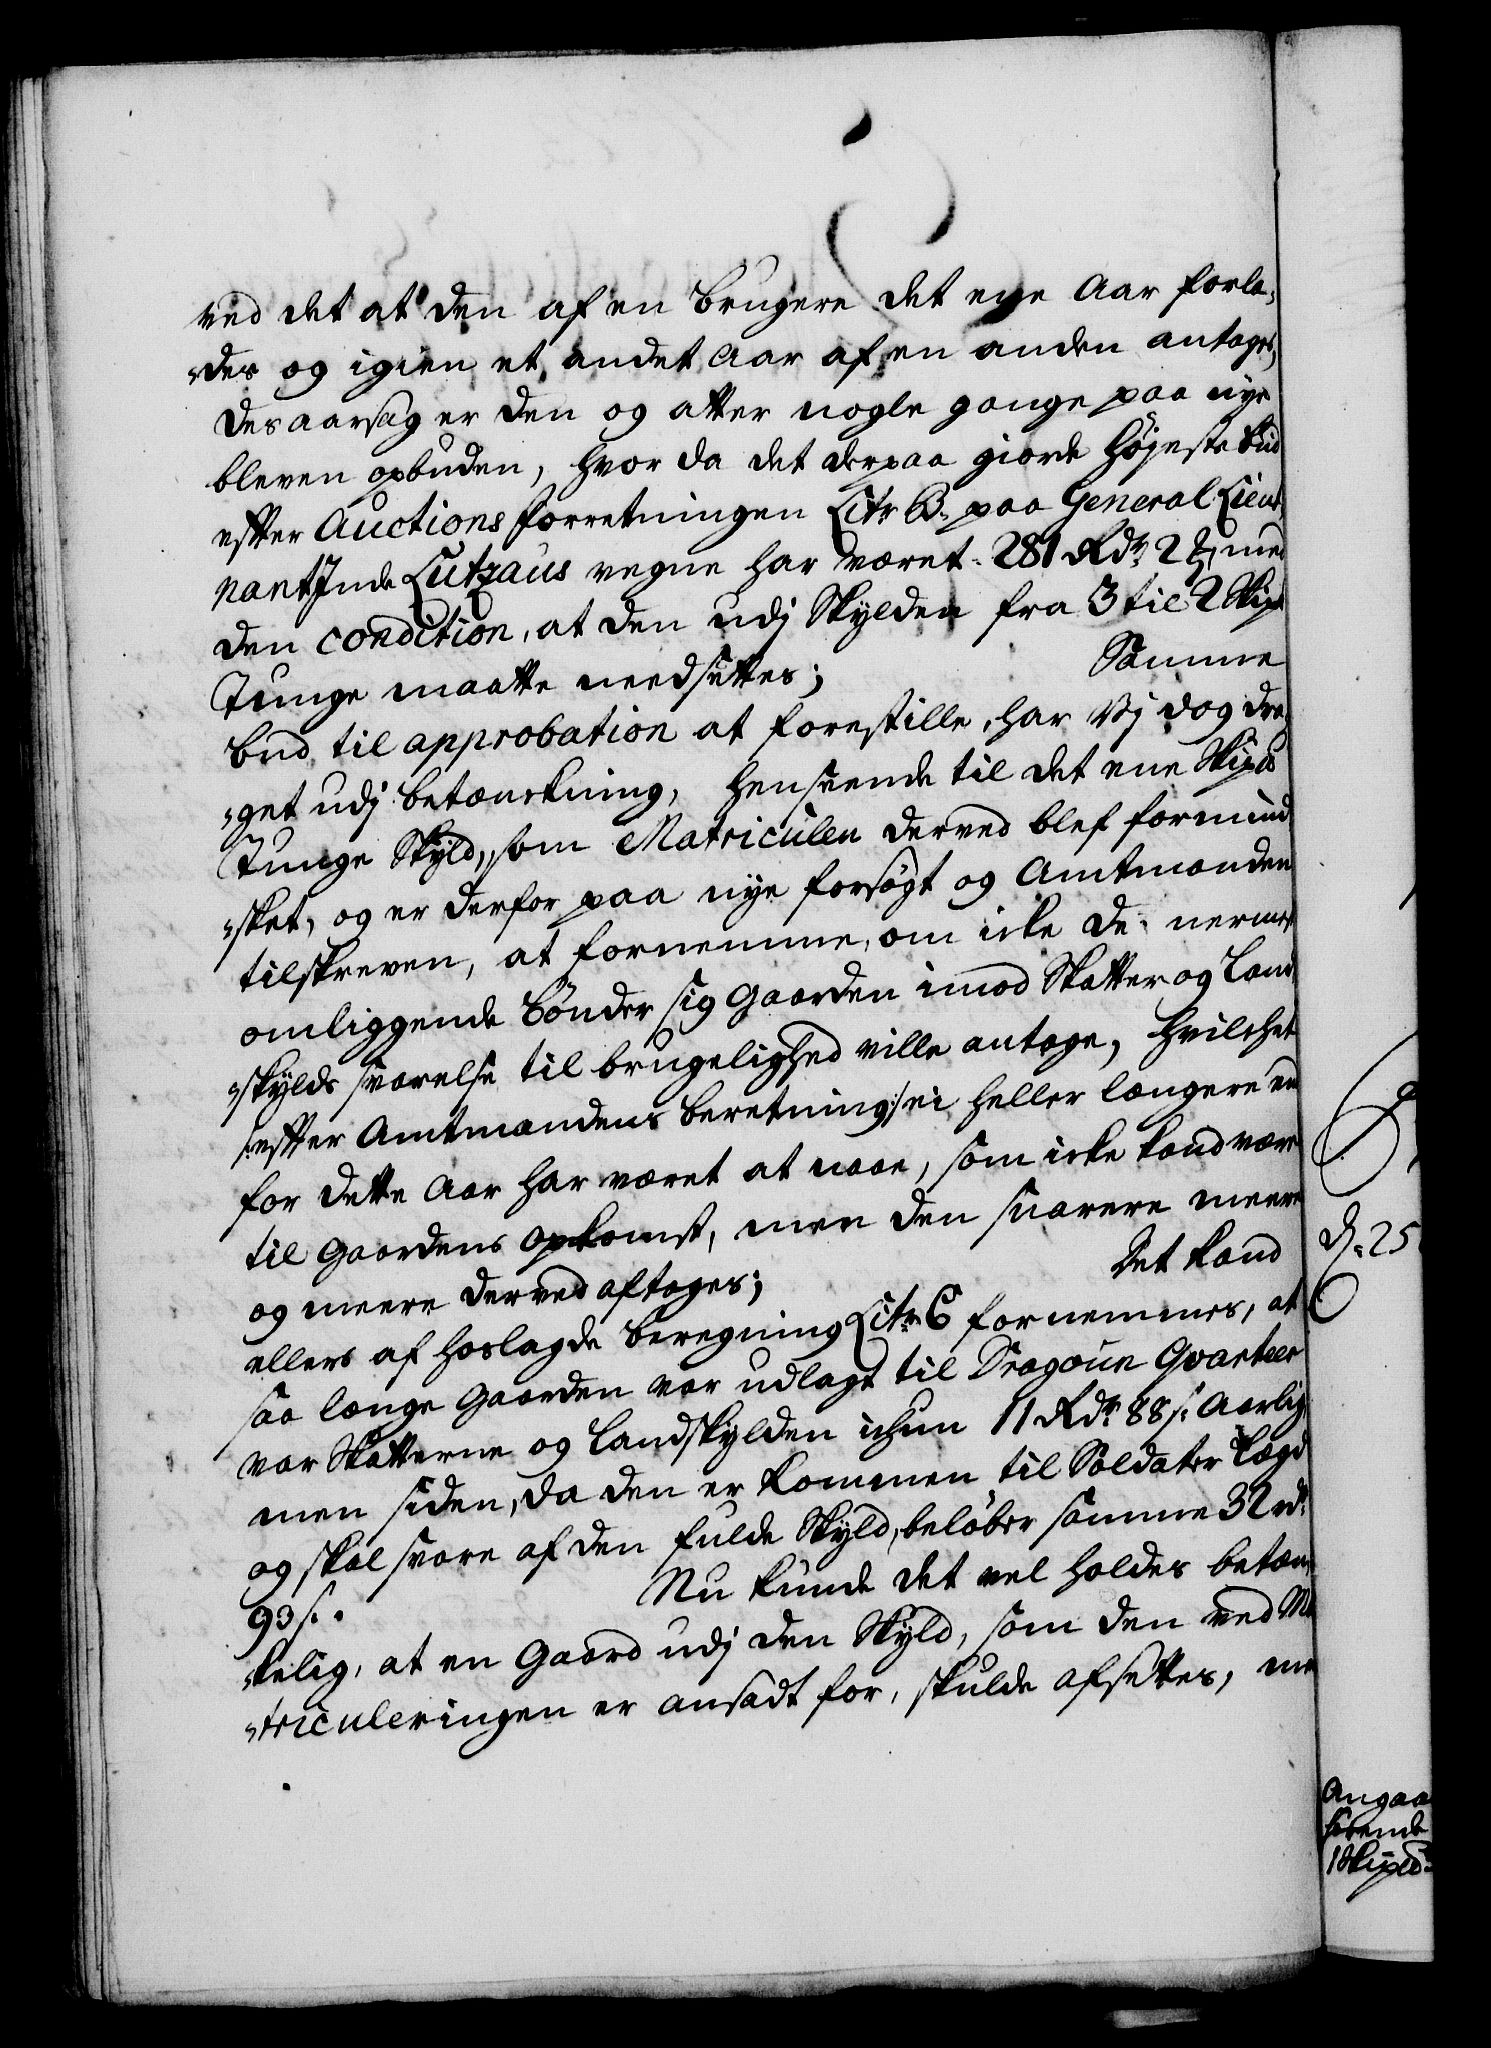 ved det at den af en brugere det ene Aar forla-
des og igien et andet Aar af en anden antages,
des aarsag er den og atter nogle gange paa nye
bleven opbuden, hvor da det derpaa giorde Højeste bud
efter Auctions forretningen Litr B. paa General Lieut
nantInde Lutzaus vegne har været 281 Rdr 2 ꝶ, med
den condition, at den udj Skylden fra 3 til 2 Skip
Tunge maatte needsettes; Samme
bud til approbation at forestille, har Vj dog dra-
get udj betænckning, henseende til det ene Skip
Tunge Skyld, som Matriculen derved blef formind
sket, og er derfor paa nye forsøgt og Amtmanden
tilskreven, at fornemme, om icke de nermest
omliggende bønder sig Gaarden imod Skatter og Land
skylds svarelse til brugelighed ville antage, hvilchet
/:efter Amtmandens beretning:/ ei heller længere en
for dette Aar har været at naae, som icke kand være
til Gaardens opkomst, men den snarere meere
og meere derved aftages; Det kand
ellers af hoslagde beregning Litr C fornemmes, at
saa længe Gaarden var udlagt til Dragoun Qvarteer
var Skatterne og Landskylden ichun 11 Rdr 88 s. Aarlig
men siden, da den er kommen til Soldater Lægd
og skal svare af den fulde Skyld, beløber samme 32 rdr
93 s. Nu kunde det vel holdes betæn
kelig, at en Gaard udj den Skyld, som den ved Ma
triculeringen er ansadt for, skulde afsettes, me
d. 25
Angaa
1 Skipd